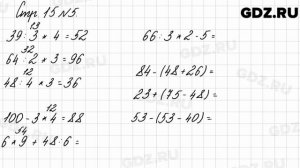 GDZ.RU
Стр. 15 №5.
13
39 : 3 * 4 = 52
32
64 : 2 * 3 = 96
12
48 : 4 * 3 = 36
12
100 - 3 * 4 = 88
54
6 * 9 + 48 : 6 =
66 : 3 * 2 - 5 =
84 - (48 + 26) =
23 + (75 - 48) =
53 - (53 - 40) =
GDZ.RU